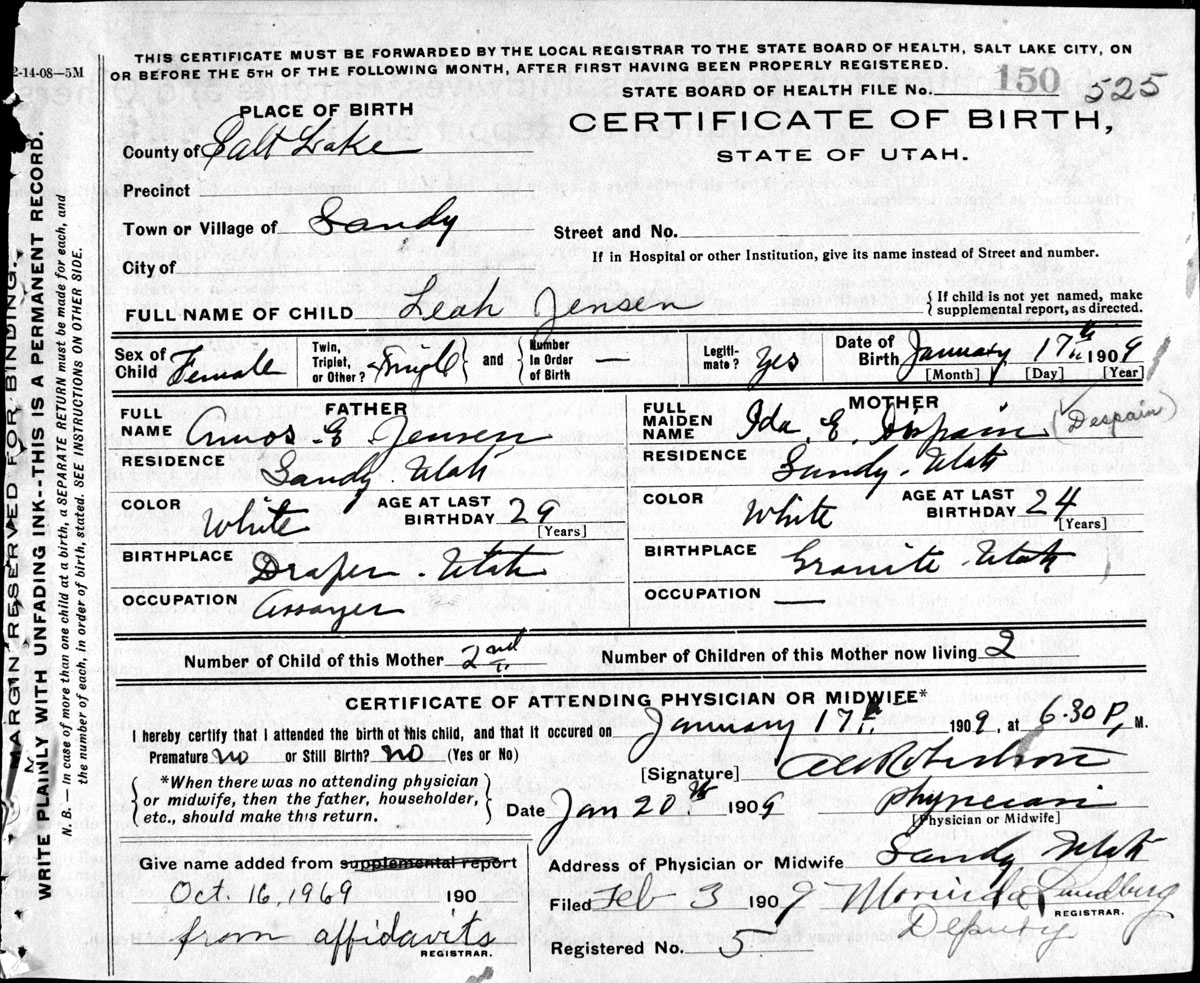 2-14-08—5M
THIS CERTIFICATE MUST BE FORWARDED BY THE LOCAL REGISTRAR TO THE STATE BOARD OF HEALTH, SALT LAKE CITY, ON
OR BEFORE THE 5TH OF THE FOLLOWING MONTH, AFTER FIRST HAVING BEEN PROPERLY REGISTERED.
STATE BOARD OF HEALTH FILE No. 150 525
PLACE OF BIRTH
CERTIFICATE OF BIRTH,
STATE OF UTAH.
County of Salt Lake
Precinct
Town or Village of Sandy
Street and No.
If in Hospital or other Institution, give its name instead of Street and number.
City of
FULL NAME OF CHILD Leah Jensen
{ If child is not yet named, make
supplemental report, as directed.
Sex of Child Female
Twin, Triplet, or Other? Single } and { Number In Order of Birth —
Legiti-mate? Yes
Date of Birth January 17th 1909
[Month] [Day] [Year]
FATHER
FULL NAME Amos E Jensen
RESIDENCE Sandy Utah
COLOR White AGE AT LAST BIRTHDAY 29
[Years]
BIRTHPLACE Draper - Utah
OCCUPATION Assayer
MOTHER
FULL MAIDEN NAME Ida E. Dispain (Despain)
RESIDENCE Sandy - Utah
COLOR White AGE AT LAST BIRTHDAY 24
[Years]
BIRTHPLACE Granite - Utah
OCCUPATION —
Number of Child of this Mother 2nd
Number of Children of this Mother now living 2
CERTIFICATE OF ATTENDING PHYSICIAN OR MIDWIFE*
I hereby certify that I attended the birth of this child, and that it occured on January 17th 1909, at 6.30 P, M.
Premature no or Still Birth? no (Yes or No)
{ *When there was no attending physician
or midwife, then the father, householder,
etc., should make this return. }
[Signature] Robertson
Date Jan 20th 1909
Physician
[Physician or Midwife]
Address of Physician or Midwife Sandy Utah
Give name added from supplemental report
Oct. 16, 1969 190
from affidavits
REGISTRAR.
Filed Feb 3 1909 Lundberg
REGISTRAR.
Deputy
Registered No. 5
MARGIN RESERVED FOR BINDING.
WRITE PLAINLY WITH UNFADING INK--THIS IS A PERMANENT RECORD.
N. B.—In case of more than one child at a birth, a SEPARATE RETURN must be made for each, and
the number of each, in order of birth, stated. SEE INSTRUCTIONS ON OTHER SIDE.